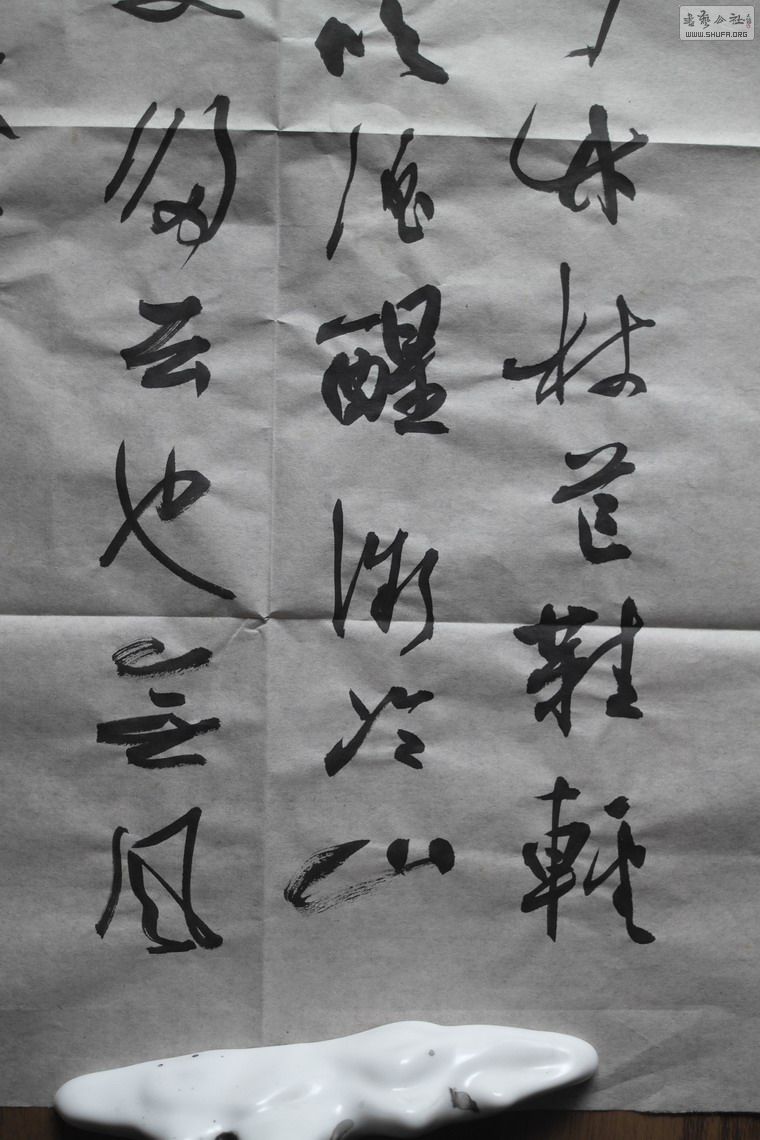 竹杖芒鞋輕
吹酒醒微冷山
歸去也無風
書藝公社
WWW.SHUFA.ORG